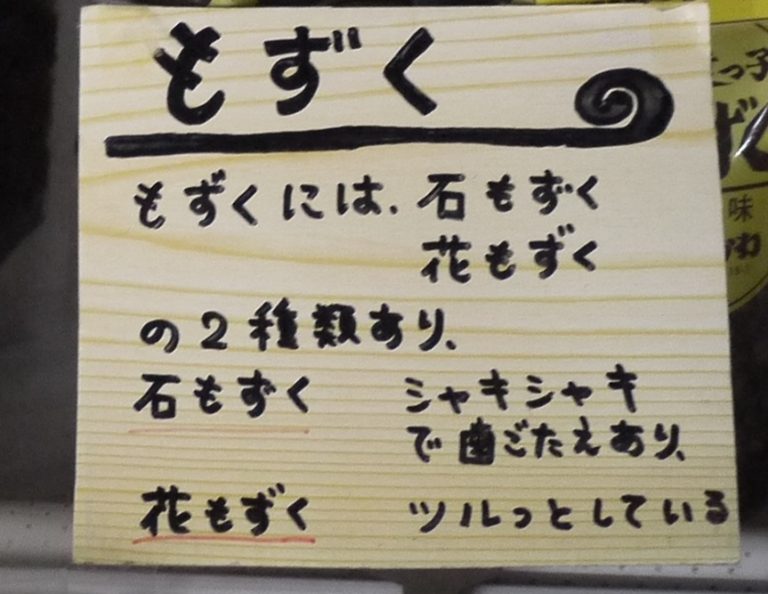 もずく
もずくには、石もずく
花もずく
の2種類あり、
石もずく シャキシャキ
で歯ごたえあり、
花もずく ツルっとしている
味